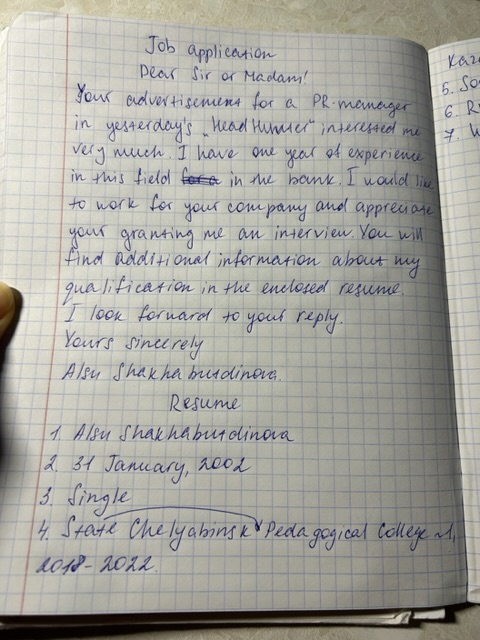 Job application
Dear Sir or Madam!
Your advertisement for a PR-manager
in yesterday's „HeadHunter" interested me
very much. I have one year of experience
in this field in the bank. I would like
to work for your company and appreciate
your granting me an interview. You will
find additional information about my
qualification in the enclosed resume.
I look forward to your reply.
Yours sincerely
Alsu Shakhabutdinova.
Resume
1. Alsu Shakhabutdinova
2. 31 January, 2002
3. Single
4. State Chelyabinsk Pedagogical College №1,
2018-2022.
5.
6.
7.